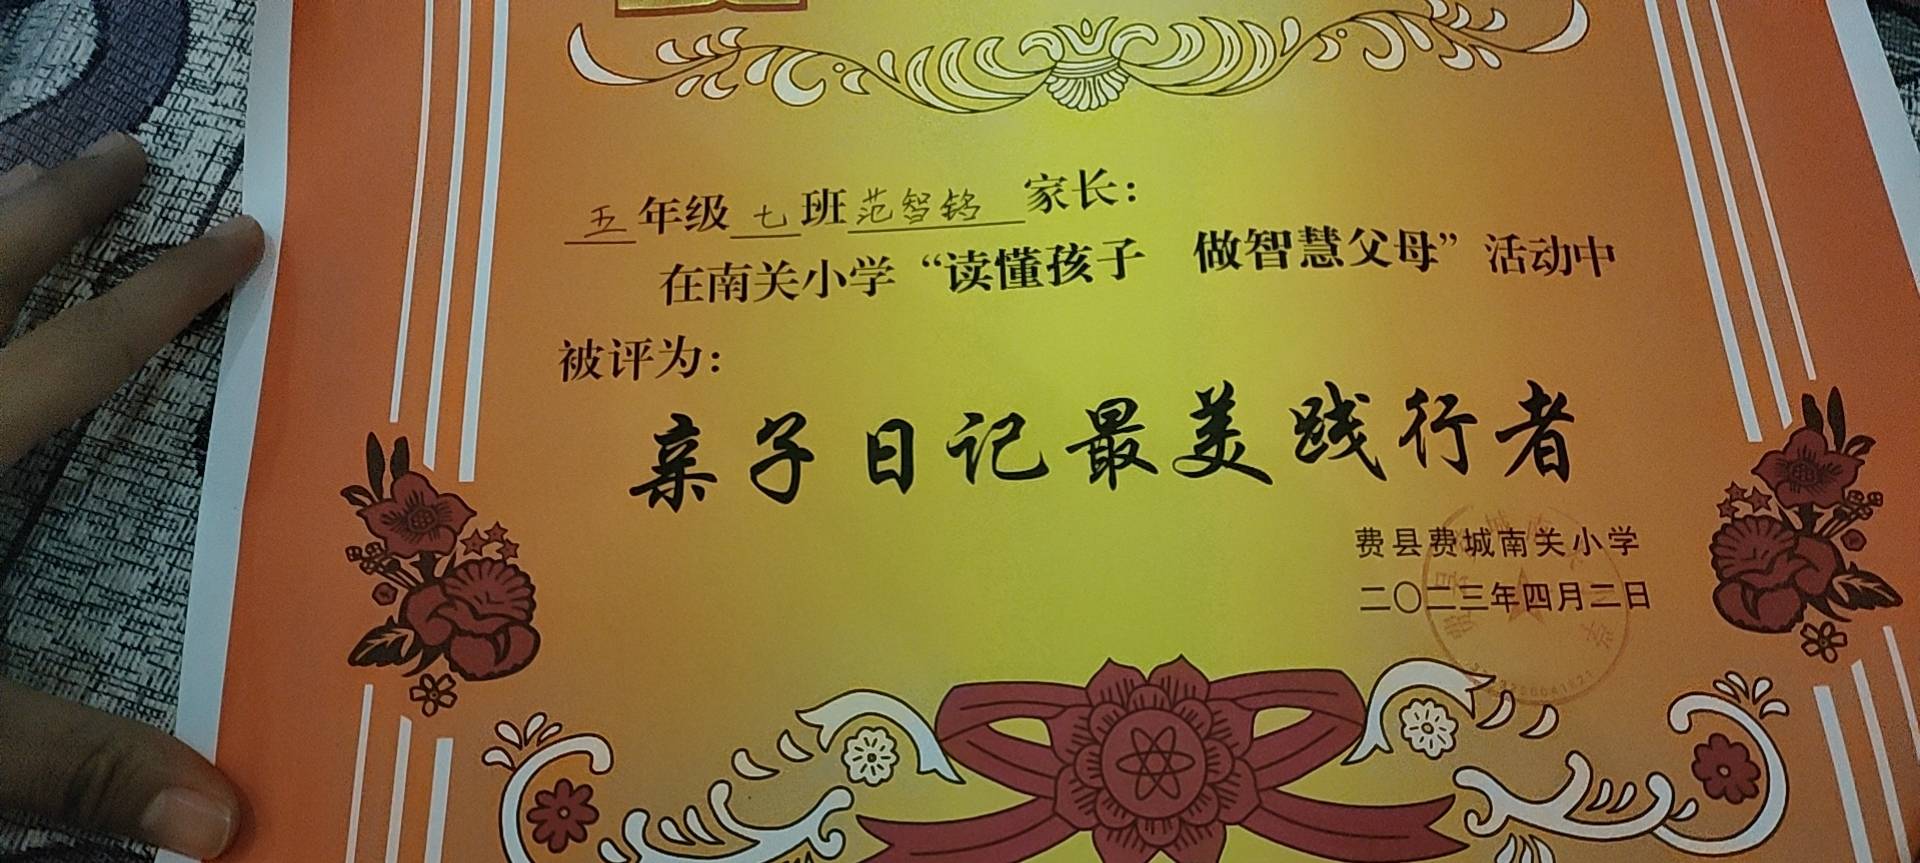 五年级七班范智铭家长：
在南关小学“读懂孩子 做智慧父母”活动中
被评为：
亲子日记最美践行者
费县费城南关小学
二〇二三年四月二日